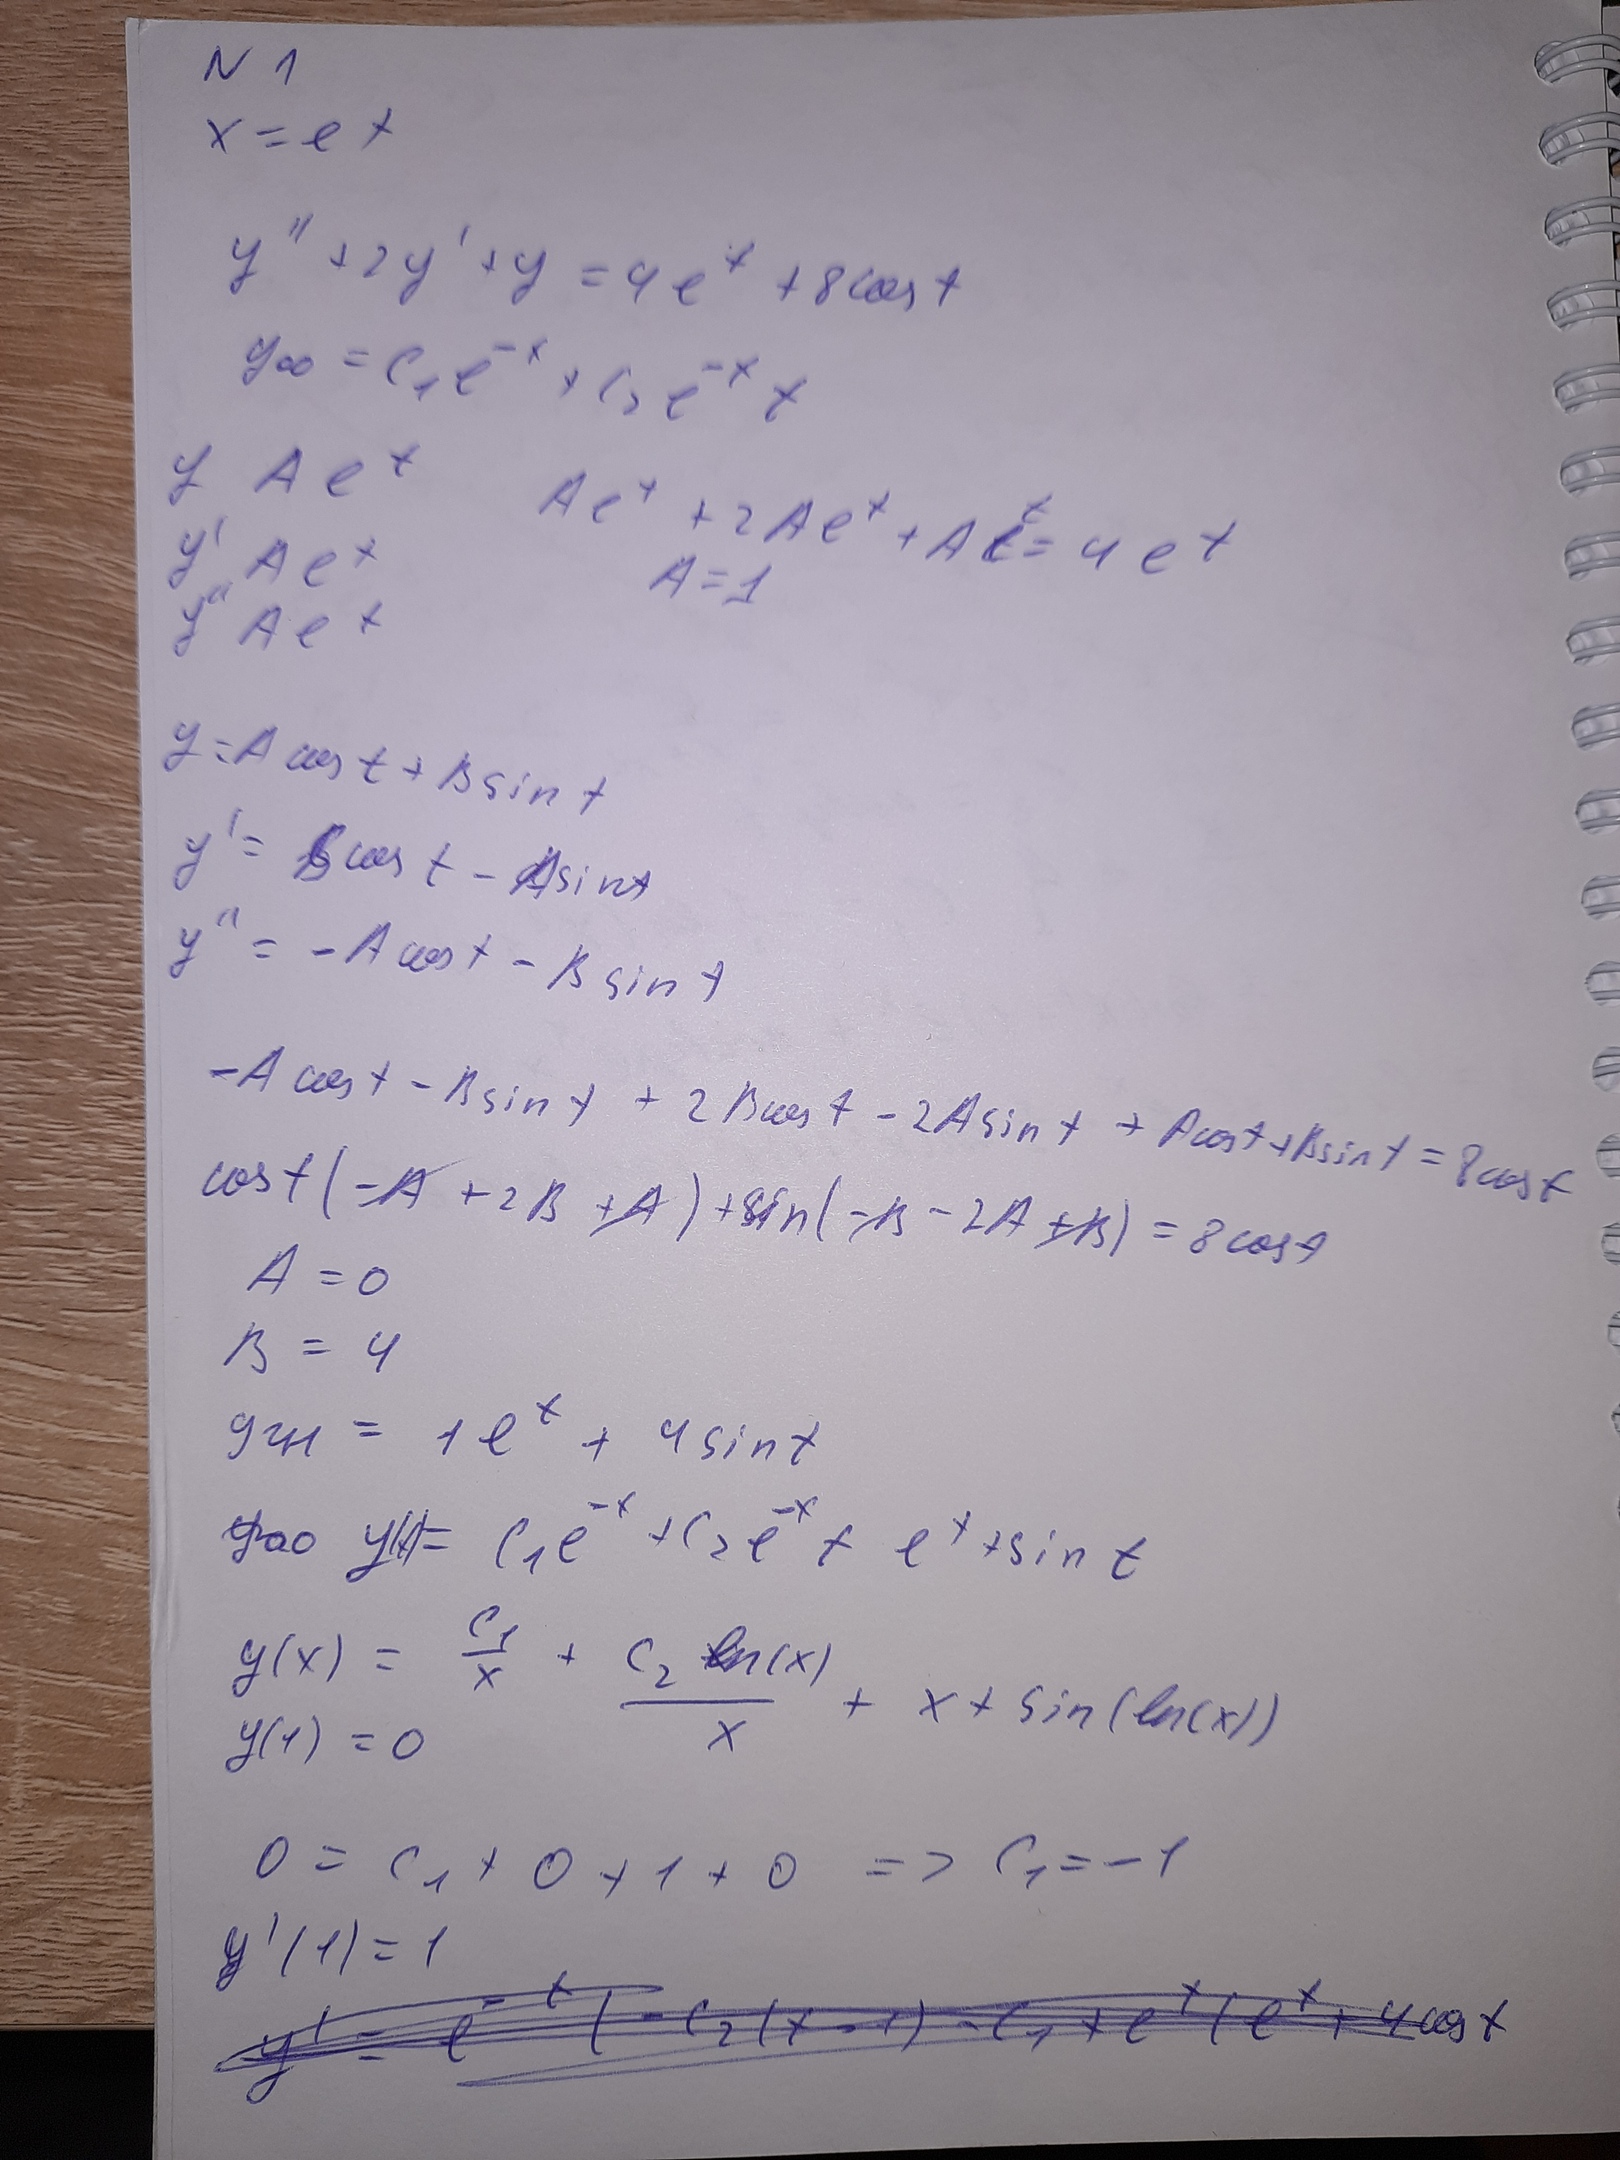 N 1
x = e^t
y'' + 2y' + y = 4e^t + 8cos t
yоо = C₁e^-t + C₂e^-t t
y Ae^t
Ae^t + 2Ae^t + Ae^t = 4e^t
y' Ae^t
A = 1
y'' Ae^t
y = A cos t + B sin t
y' = B cos t - A sin t
y'' = -A cos t - B sin t
-A cos t - B sin t + 2B cos t - 2A sin t + A cos t + B sin t = 8cos t
cos t (-A + 2B + A) + sin (-B - 2A + B) = 8cos t
A = 0
B = 4
yчн = 1e^t + 4 sin t
y(t) = C₁e^-t + C₂e^-t t e^t + sin t
y(x) = C₁/x + C₂ ln(x)/x + x + sin(ln(x))
y(1) = 0
0 = C₁ + 0 + 1 + 0 => C₁ = -1
y'(1) = 1
y' = e^-t (-C₂(t-1) - C₁ + e^t (e^t + 4cos t